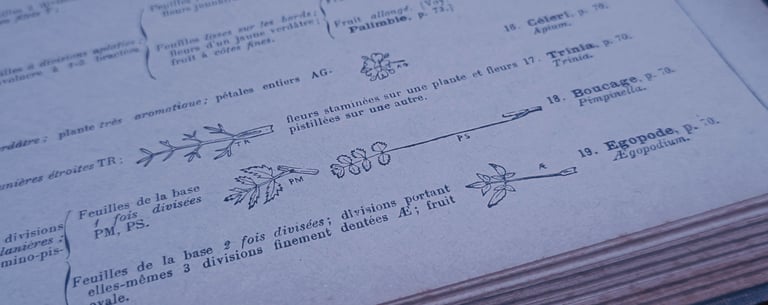 Feuilles
fleurs
Feuilles lisses sur les bords;
fleurs d'un jaune verdâtre;
fruit à côtes fines.
Fruit allongé. (Voy.
Palimbie, p. 72.)
à divisions aplaties;
plante très aromatique; pétales entiers AG.
AG
16. Céleri, p. 70.
Apium.
lanières étroites TR;
TR
fleurs staminées sur une plante et fleurs
pistillées sur une autre.
17. Trinia, p. 70.
Trinia.
divisions
lanières;
mino-pis-
Feuilles de la base
1 fois divisées
PM, PS.
PM
PS
18. Boucage, p. 70.
Pimpinella.
Feuilles de la base 2 fois divisées; divisions portant
elles-mêmes 3 divisions finement dentées Æ; fruit
ovale.
Æ
19. Egopode, p. 70.
Ægopodium.